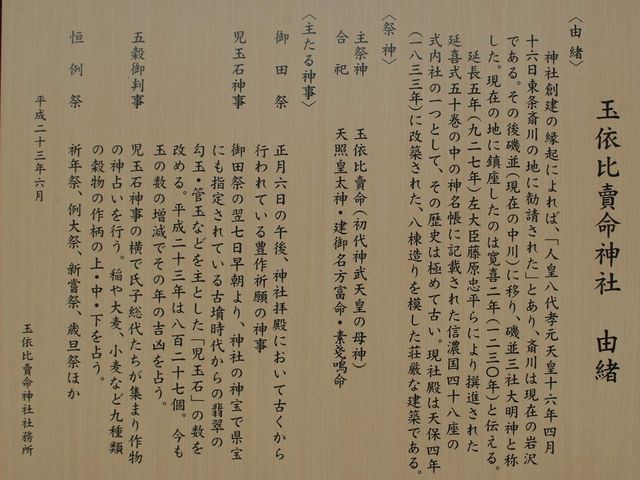 玉依比賣命神社　由緒
〈由緒〉
神社創建の縁起によれば、「人皇八代孝元天皇十六年四月
十六日東条斎川の地に勧請された」とあり、斎川は現在の岩沢
である。その後磯並(現在の中川)に移り、磯並三社大明神と称
した。現在の地に鎮座したのは寛喜二年(一二三〇年)と伝える。
延長五年(九二七年)左大臣藤原忠平らにより撰進された
延喜式五十巻の中の神名帳に記載された信濃国四十八座の
式内社の一つとして、その歴史は極めて古い。現社殿は天保四年
(一八三三年)に改築された、八棟造りを模した荘厳な建築である。
〈祭神〉
主祭神　玉依比賣命(初代神武天皇の母神)
合祀　天照皇太神・建御名方富命・素戔嗚命
〈主たる神事〉
御田祭　正月六日の午後、神社拝殿において古くから
行われている豊作祈願の神事
児玉石神事　御田祭の翌七日早朝より、神社の神宝で県宝
にも指定されている古墳時代からの翡翠の
勾玉・管玉などを主とした「児玉石」の数を
改める。平成二十三年は八百二十七個。今も
玉の数の増減でその年の吉凶を占う。
五穀御判事　児玉石神事の横で氏子総代たちが集まり作物
の神占いを行う。稲や大麦、小麦など九種類
の穀物の作柄の上・中・下を占う。
恒例祭　祈年祭、例大祭、新嘗祭、歳旦祭ほか
平成二十三年六月
玉依比賣命神社社務所